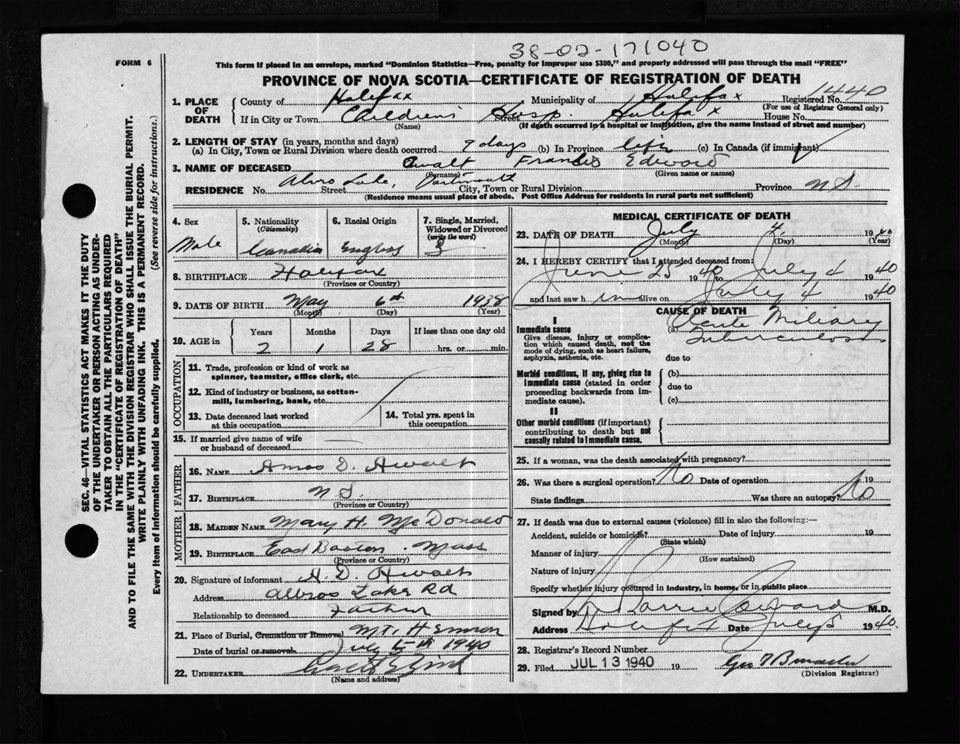 38-02-171040
FORM 6
This form if placed in an envelope, marked "Dominion Statistics—Free, penalty for improper use $300," and properly addressed will pass through the mail "FREE"
PROVINCE OF NOVA SCOTIA—CERTIFICATE OF REGISTRATION OF DEATH
1440
1. PLACE OF DEATH County of Halifax Municipality of Halifax Registered No.
(For use of Registrar General only)
If in City or Town Children's Hosp. Halifax Street House No.
(Name) (If death occurred in a hospital or institution, give the name instead of street and number)
2. LENGTH OF STAY (in years, months and days)
(a) In City, Town or Rural Division where death occurred 9 days (b) In Province life (c) In Canada (if immigrant)
3. NAME OF DECEASED Awalt Francis Edward
(Surname) (Given name or names)
RESIDENCE No. Street Lake, Dartmouth City, Town or Rural Division Province N S
(Residence means usual place of abode. Post Office Address for residents in rural parts not sufficient)
4. Sex Male
5. Nationality (Citizenship) Canadian
6. Racial Origin English
7. Single, Married, Widowed or Divorced (write the word) S
8. BIRTHPLACE Halifax
(Province or Country)
9. DATE OF BIRTH May 6th 1938
(Month) (Day) (Year)
10. AGE in Years Months Days If less than one day old
2 1 28 hrs. or min.
OCCUPATION
11. Trade, profession or kind of work as spinner, teamster, office clerk, etc.
12. Kind of industry or business, as cotton-mill, lumbering, bank, etc.
13. Date deceased last worked at this occupation
14. Total yrs. spent in this occupation
15. If married give name of wife or husband of deceased
FATHER
16. NAME Amos D. Awalt
17. BIRTHPLACE N S.
(Province or Country)
MOTHER
18. MAIDEN NAME Mary H. McDonald
19. BIRTHPLACE East Boston Mass
(Province or Country)
20. Signature of informant A. D. Awalt
Address Albros Lake Rd
Relationship to deceased Father
21. Place of Burial, Cremation or Removal MT. H
Date of burial or removal July 5th 1940
22. UNDERTAKER
(Name and address)
MEDICAL CERTIFICATE OF DEATH
23. DATE OF DEATH July 4 1940
(Month) (Day) (Year)
24. I HEREBY CERTIFY that I attended deceased from:
June 25 1940 to July 4 1940
and last saw him alive on July 4 1940
CAUSE OF DEATH
I
Immediate cause
Give disease, injury or complication which caused death, not the mode of dying, such as heart failure, asphyxia, asthenia, etc.
(a) Acute Miliary
Tuberculosis
due to
Morbid conditions, if any, giving rise to immediate cause (stated in order proceeding backwards from immediate cause).
(b)
due to
(c)
II
Other morbid conditions (if important) contributing to death but not causally related to immediate cause.
25. If a woman, was the death associated with pregnancy?
26. Was there a surgical operation? No Date of operation
State findings Was there an autopsy? No
27. If death was due to external causes (violence) fill in also the following:—
Accident, suicide or homicide? Date of injury 19
(State which)
Manner of injury
(How sustained)
Nature of injury
Specify whether injury occurred in industry, in home, or in public place
Signed by M.D.
Address Halifax Date July 5 1940
28. Registrar's Record Number
29. Filed JUL 13 1940 19
(Division Registrar)
SEC. 46—VITAL STATISTICS ACT MAKES IT THE DUTY
OF THE UNDERTAKER OR PERSON ACTING AS UNDERTAKER TO OBTAIN ALL THE PARTICULARS REQUIRED
IN THE "CERTIFICATE OF REGISTRATION OF DEATH"
AND TO FILE THE SAME WITH THE DIVISION REGISTRAR WHO SHALL ISSUE THE BURIAL PERMIT.
WRITE PLAINLY WITH UNFADING INK. THIS IS A PERMANENT RECORD.
Every item of Information should be carefully supplied. (See reverse side for instructions.)